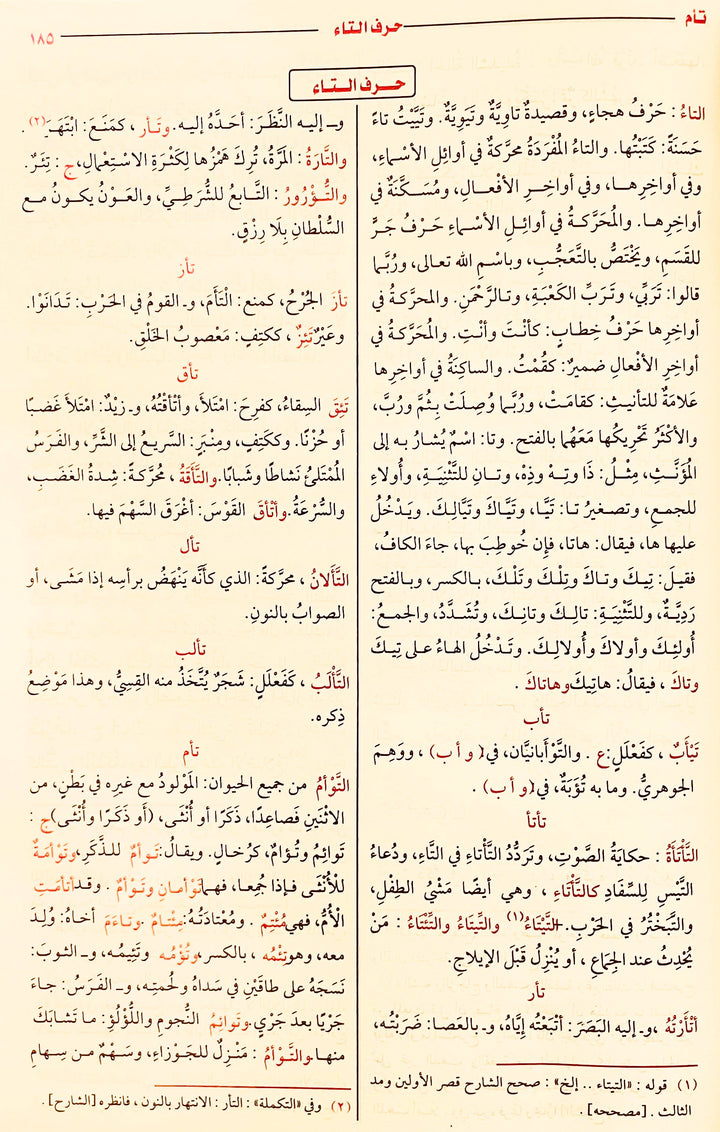 تأم
حرف التاء
١٨٥
حرف التـاء
التاءُ: حَرْفُ هجاءٍ، وقصيدةٌ تاوِيَّةٌ وتَيَوِيَّةٌ. وتَيَّيْتُ تاءً
حَسَنَةً: كَتَبْتُها. والتاءُ المُفْرَدَةُ محرَّكةٌ في أوائِلِ الأسْماءِ،
وفي أواخِرِهـا، وفي أواخِـرِ الأفْعـالِ، ومُسَـكَّنَةٌ في
أواخِرِهـا. والمُحَرَّكـةُ في أوائِـلِ الأسْـماءِ حَـرْفُ جَـرٍّ
للقَسَمِ، ويَخْتَصُّ بالتَّعَجُّبِ، وباسْمِ الله تعالى، ورُبَّـما
قالوا: تَرَبِّي، وتَرَبِّ الكَعْبَةِ، وتـالرَّحْمَنِ. والمحرَّكةُ في
أواخِرِها حَرْفُ خِطابٍ: كأنْتَ وأنْتِ. والمُحَرَّكةُ في
أواخِرِ الأفْعالِ ضميرٌ: كقُمْتُ. والساكِنَةُ في أواخِرِها
عَلامَةٌ للتأنيثِ: كقامَتْ، ورُبَّـما وُصِلَتْ بِثُمَّ ورُبَّ،
والأكْثَرُ تَحْرِيكُها مَعَهُما بالفتح. وتا: اسْمٌ يُشارُ بـه إلى
المُؤَنَّـثِ، مِثْـلُ: ذَا وتِـهْ وذِهْ، وتـانِ للتَّثْنِيَـةِ، وأُولاءِ
للجمعِ، وتصغيرُ تـا: تَيَّا، وتَيَّاكَ وتَيَّالِـكَ. ويَـدْخُلُ
عليها ها، فيقال: هاتا، فإن خُوطِبَ بها، جاءَ الكافُ،
فقيلَ: تِيـكَ وتاكَ وتِلْكَ وتَلْكَ، بالكسر، وبـالفتح
رَدِيَّـةٌ، وللتَّثْنِيَةِ: تالِـكَ وتانِـكَ، وتُشَـدَّدُ، والجمـعُ:
أُولئِـكَ وأولاكَ وأُولالِـكَ. وتَـدْخُلُ الهـاءُ عـلى تِيـكَ
وتاكَ ، فيقالُ: هاتِيكَ وهاتاكَ .
تأب
تَيْأَبٌ ، كفَعْلَلٍ: ع . والتَّوْأبانيَّان، في (و أ ب) ، ووَهِـمَ
الجوهريُّ. وما به تُؤَبَةٌ، في (و أ ب) .
تأتأ
التَّأْتَأَةُ : حكايةُ الصَّوْتِ، وتَرَدُّدُ التَّأْتاءِ في التَّاءِ، ودُعاءُ
التَّيْسِ للسِّفَادِ كالتَّأْتَاءِ ، وهي أيضًا مَشْيُ الطِّفْلِ،
والتَّبَخْتُرُ في الحَرْبِ. التِّيْتَاءُ(١) والتِّيتَاءُ والتِّئْتَاءُ : مَنْ
يُحْدِثُ عند الجِماعِ ، أو يُنْزِلُ قَبْلَ الإيلاجِ.
تأر
أتْأَرْتُهُ ،وـ إليه البَصَرَ: أتْبَعْتُه إيَّاهُ، وـ بـالعصـا: ضَرَبْتُـه،
(١) قوله : «التيتاء .. إلخ» : صحح الشارح قصر الأولين ومد
الثالث . [مصححه] .
وـ إليـه النَّظَرَ: أحَـدَّهُ إليـه. وتَـأَر ، كمَنَعَ: ابْتَهَـرَ(٢) .
والتَّارَةُ : المَرَّةُ، تُرِكَ هَمْزُها لِكَثْرَةِ الاسْتِعْمالِ، ج : تِئَرٌ.
والتُّـؤْرُورُ : التَّـابعُ للشُّرَطِـيِّ، والعَـوْنُ يكـونُ مـع
السُّلْطانِ بِلَا رِزْقٍ.
تأز
تأزَ الجُرْحُ، كمنع: الْتَأَمَ، وـ القومُ في الحَرْبِ: تَـدَانَوْا.
وعَيْرٌ تَئِزٌ ، ككتِفٍ: مَعْصوبُ الخَلْقِ.
تأق
تَئِقَ السِقاءُ، كفرِحَ: امْتَلَأَ، وأتْأقْتُهُ، وـ زيْدٌ: امْتَلَأَ غَضَبًـا
أو حُزْنًا. وككَتِفٍ، ومِنْبَرٍ: السَّريعُ إلى الشَّرِّ، والفَـرَسُ
المُمْتَلِئُ نَشاطًا وشَبابًا. والتَّأَقَةُ ، مُحَرَّكةً: شِدةُ الغَضَبِ،
والسُّرْعَةُ. وأتْأقَ القَوْسَ: أغْرَقَ السَّهْمَ فيها.
تأل
التَّأَلانُ ، محرَّكةً: الذي كأنَّه يَنْهَضُ برأسِه إذا مَشَـى، أو
الصوابُ بالنونِ.
تألب
التَّأْلَبُ ، كَفَعْلَلٍ: شَجَرٌ يُتَّخَذُ منه القِسِيُّ، وهذا مَوْضِعُ
ذِكرِه.
تأم
التَّوْأمُ من جميعِ الحيوان: المَوْلودُ مع غيرِه في بَطْنٍ، من
الاثْنَينِ فَصاعِدًا، ذَكَرًا أو أُنْثَى، (أو ذَكَرًا وأُنْثَى) ج :
تَوائِمُ وتُؤامٌ، كرُخالٍ. ويقالُ: تَـوأمٌ للـذَّكَرِ، وتَوْأمَةٌ
للأُنْثَى فـإذا جُمِعا، فهـما تَوْأمـانِ وتَـوْأمٌ . وقـد أتأمَـتِ
الأمُّ، فهي مُتْئِمٌ . ومُعْتَادَتُـهُ: مِتْئـامٌ . وتـاءَمَ أخـاهُ: وُلِـدَ
معه، وهو تِئْمُه ، بالكسر، وتُؤْمُـه وتَئِيمُـه، وـ الثـوبَ:
نَسَجَهُ على طاقَيْنِ في سَداهُ ولُحمتِهِ، وـ الفَرَسُ: جـاءَ
جَرْيًا بعدَ جَرْيٍ. وتَوائِمُ النُّجومِ واللُّؤْلُؤِ: مـا تَشابَكَ
منهـا. والتَّوْأمُ : مَنْزِلٌ للجَوْزاءِ، وسَـهْمٌ مـن سِـهامِ
(٢) وفي «التكملة» : التأر : الانتهار بالنون ، فانظره [الشارح] .